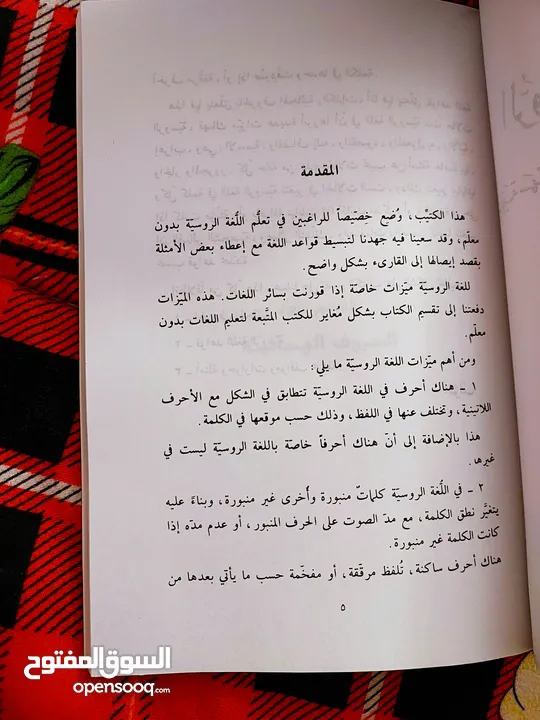 المقدمة
هذا الكتيّب، وُضع خصّيصاً للراغبين في تعلُّم اللُّغة الروسيّة بدون
معلّم، وقد سعينا فيه جهدنا لتبسيط قواعد اللغة مع إعطاء بعض الأمثلة
بقصد إيصالها إلى القارىء بشكل واضح.
للغة الروسيّة ميّزات خاصّة إذا قورنت بسائر اللغات. هذه الميّزات
دفعتنا إلى تقسيم الكتاب بشكل مُغاير للكتب المتّبعة لتعليم اللغات بدون
معلّم.
ومن أهم ميّزات اللغة الروسيّة ما يلي:
١ ـ هناك أحرف في اللغة الروسيّة تتطابق في الشكل مع الأحرف
اللاتينية، وتختلف عنها في اللفظ، وذلك حسب موقعها في الكلمة.
هذا بالإضافة إلى أنّ هناك أحرفاً خاصّة باللغة الروسيّة ليست في
غيرها.
٢ ـ في اللُّغة الروسيّة كلماتٌ منبورة وأُخرى غير منبورة، وبناءً عليه
يتغيَّر نطق الكلمة، مع مدّ الصوت على الحرف المنبور، أو عدم مدّه إذا
كانت الكلمة غير منبورة.
هناك أحرف ساكنة، تُلفظ مرقّقة، أو مفخّمة حسب ما يأتي بعدها من
٥
السوق المفتوح
opensooq.com